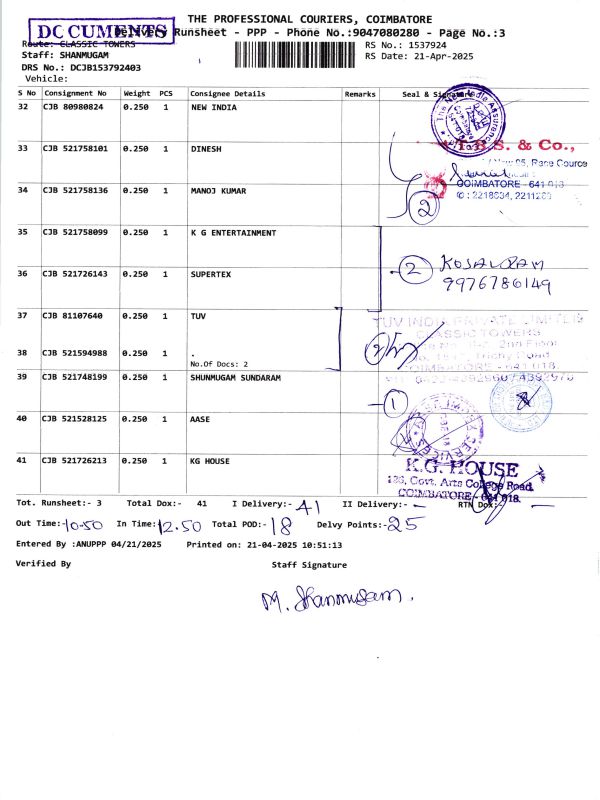 THE PROFESSIONAL COURIERS, COIMBATORE
DOCUMENTS
Delivery Runsheet - PPP - Phone No.:9047080280 - Page No.:3
Route: CLASSIC TOWERS
RS No.: 1537924
Staff: SHANMUGAM
RS Date: 21-Apr-2025
DRS No.: DCJB153792403
Vehicle:
S No Consignment No Weight PCS Consignee Details Remarks Seal & Signature
32 CJB 80980824 0.250 1 NEW INDIA
33 CJB 521758101 0.250 1 DINESH
S. & Co.,
Race Cource
34 CJB 521758136 0.250 1 MANOJ KUMAR
COIMBATORE - 641 018
2
35 CJB 521758099 0.250 1 K G ENTERTAINMENT
36 CJB 521726143 0.250 1 SUPERTEX
2
9976786149
37 CJB 81107640 0.250 1 TUV
TUV INDIA PRIVATE LIMITED
CLASSIC TOWERS
2nd Floor
Trichy Road
COIMBATORE - 641 018
38 CJB 521594988 0.250 1 .
No.Of Docs: 2
39 CJB 521748199 0.250 1 SHUNMUGAM SUNDARAM
1
40 CJB 521528125 0.250 1 AASE
41 CJB 521726213 0.250 1 KG HOUSE
K.G. HOUSE
Govt. Arts College Road
COIMBATORE - 641 018.
Tot. Runsheet:- 3 Total Dox:- 41 I Delivery:- 41 II Delivery:- — RTN Dox:-
Out Time:- 10-50 In Time: 12.50 Total POD:- 18 Delvy Points:- 25
Entered By :ANUPPP 04/21/2025 Printed on: 21-04-2025 10:51:13
Verified By Staff Signature
M. Shanmugam.